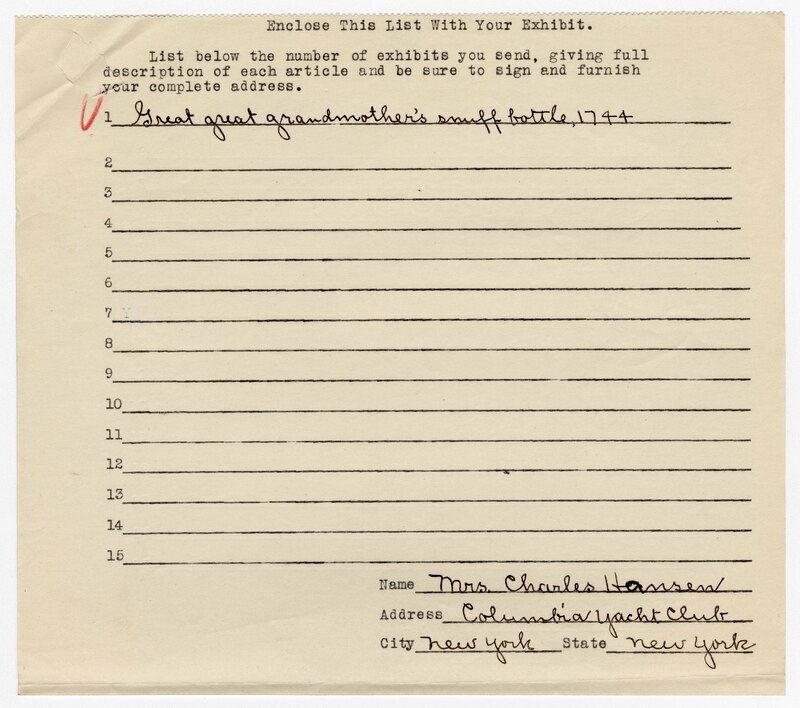 Enclose This List With Your Exhibit.
List below the number of exhibits you send, giving full
description of each article and be sure to sign and furnish
your complete address.
1 Great great grandmother's snuff bottle, 1744
2
3
4
5
6
7
8
9
10
11
12
13
14
15
Name Mrs. Charles Hansen
Address Columbia Yacht Club
City New York State New York